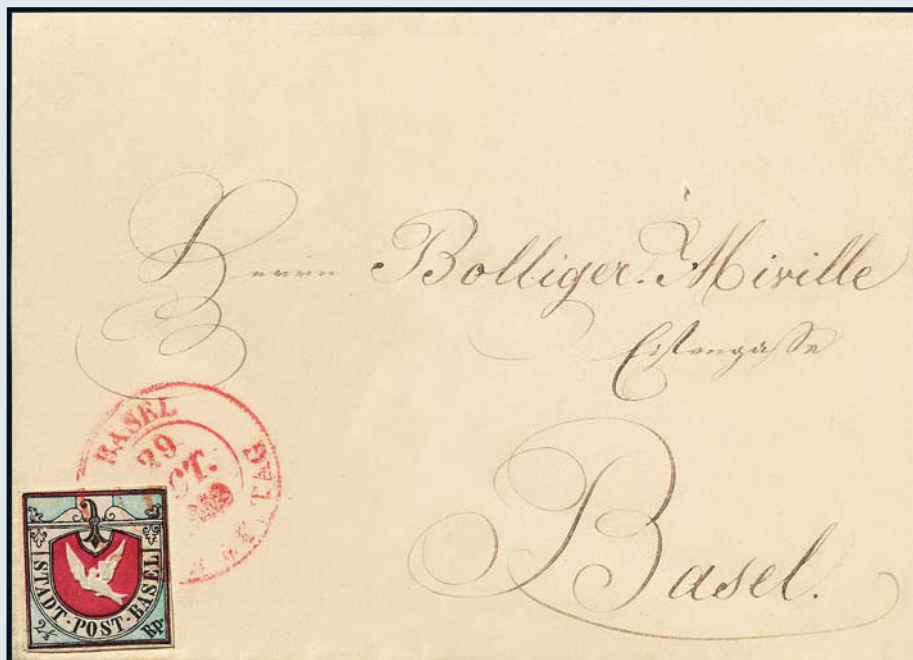 Herrn Bolliger-Miville
Eisengasse
Basel.
BASEL
29
OCT.
STADT-POST-BASEL
2½ Rp.